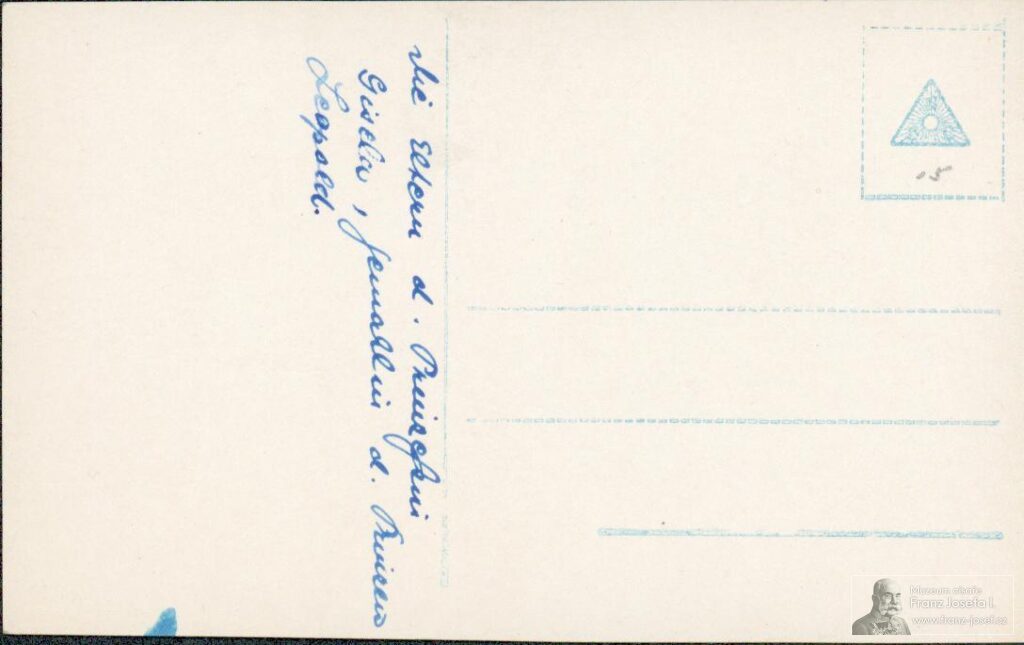 Die Eltern d. Prinzessin
Gisela, Gemahlin d. Prinzen
Leopold.
.5
Muzeum císaře
Franz Josefa I.
www.franz-josef.cz